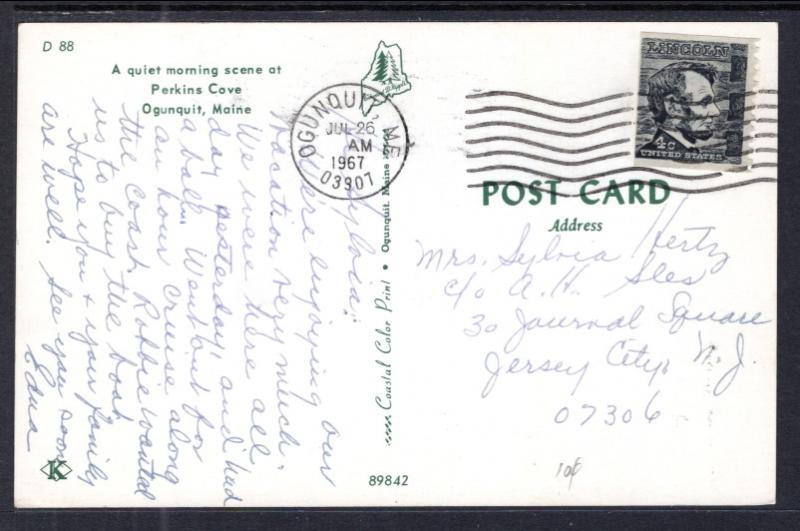 D 88
A quiet morning scene at
Perkins Cove
Ogunquit, Maine
OGUNQUIT, ME
JUL 26
AM
1967
03907
LINCOLN
4c
UNITED STATES
POST CARD
Address
Mrs. Sylvia Hertz
c/o A. H. Sles
30 Journal Square
Jersey City, N. J.
07306
Sylvia:
are enjoying our
vacation very much.
We were here all
day yesterday and had
a ball. Went out for
an hour cruise along
the coast. Robbie wanted
us to buy the boat.
Hope you & your family
are well. See you soon
Edna
Coastal Color Print • Ogunquit, Maine
K
89842
10¢